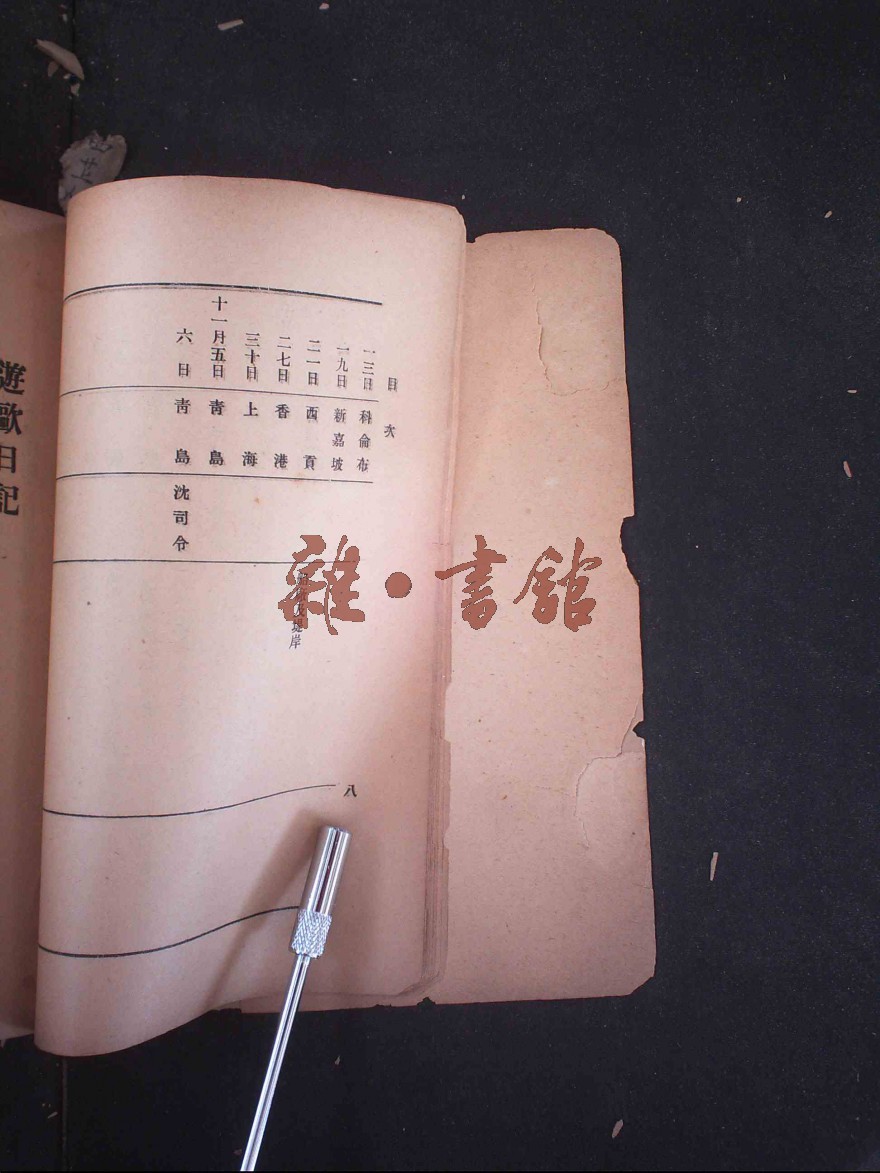 目次
一三日 科倫布
一九日 新嘉坡
二一日 西貢
堤岸
二七日 香港
三十日 上海
十一月五日 青島
六日 青島 沈司令
八
遊歐日記
雜·書館